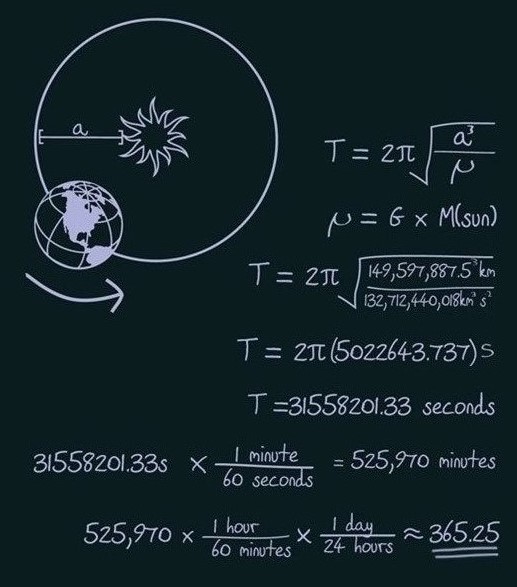 a
T = 2π √(a³/μ)
μ = G × M(sun)
T = 2π √(149,597,887.5³km / 132,712,440,018km³s²)
T = 2π(5022643.737)s
T =31558201.33 seconds
31558201.33s × 1 minute / 60 seconds = 525,970 minutes
525,970 × 1 hour / 60 minutes × 1 day / 24 hours ≈ 365.25